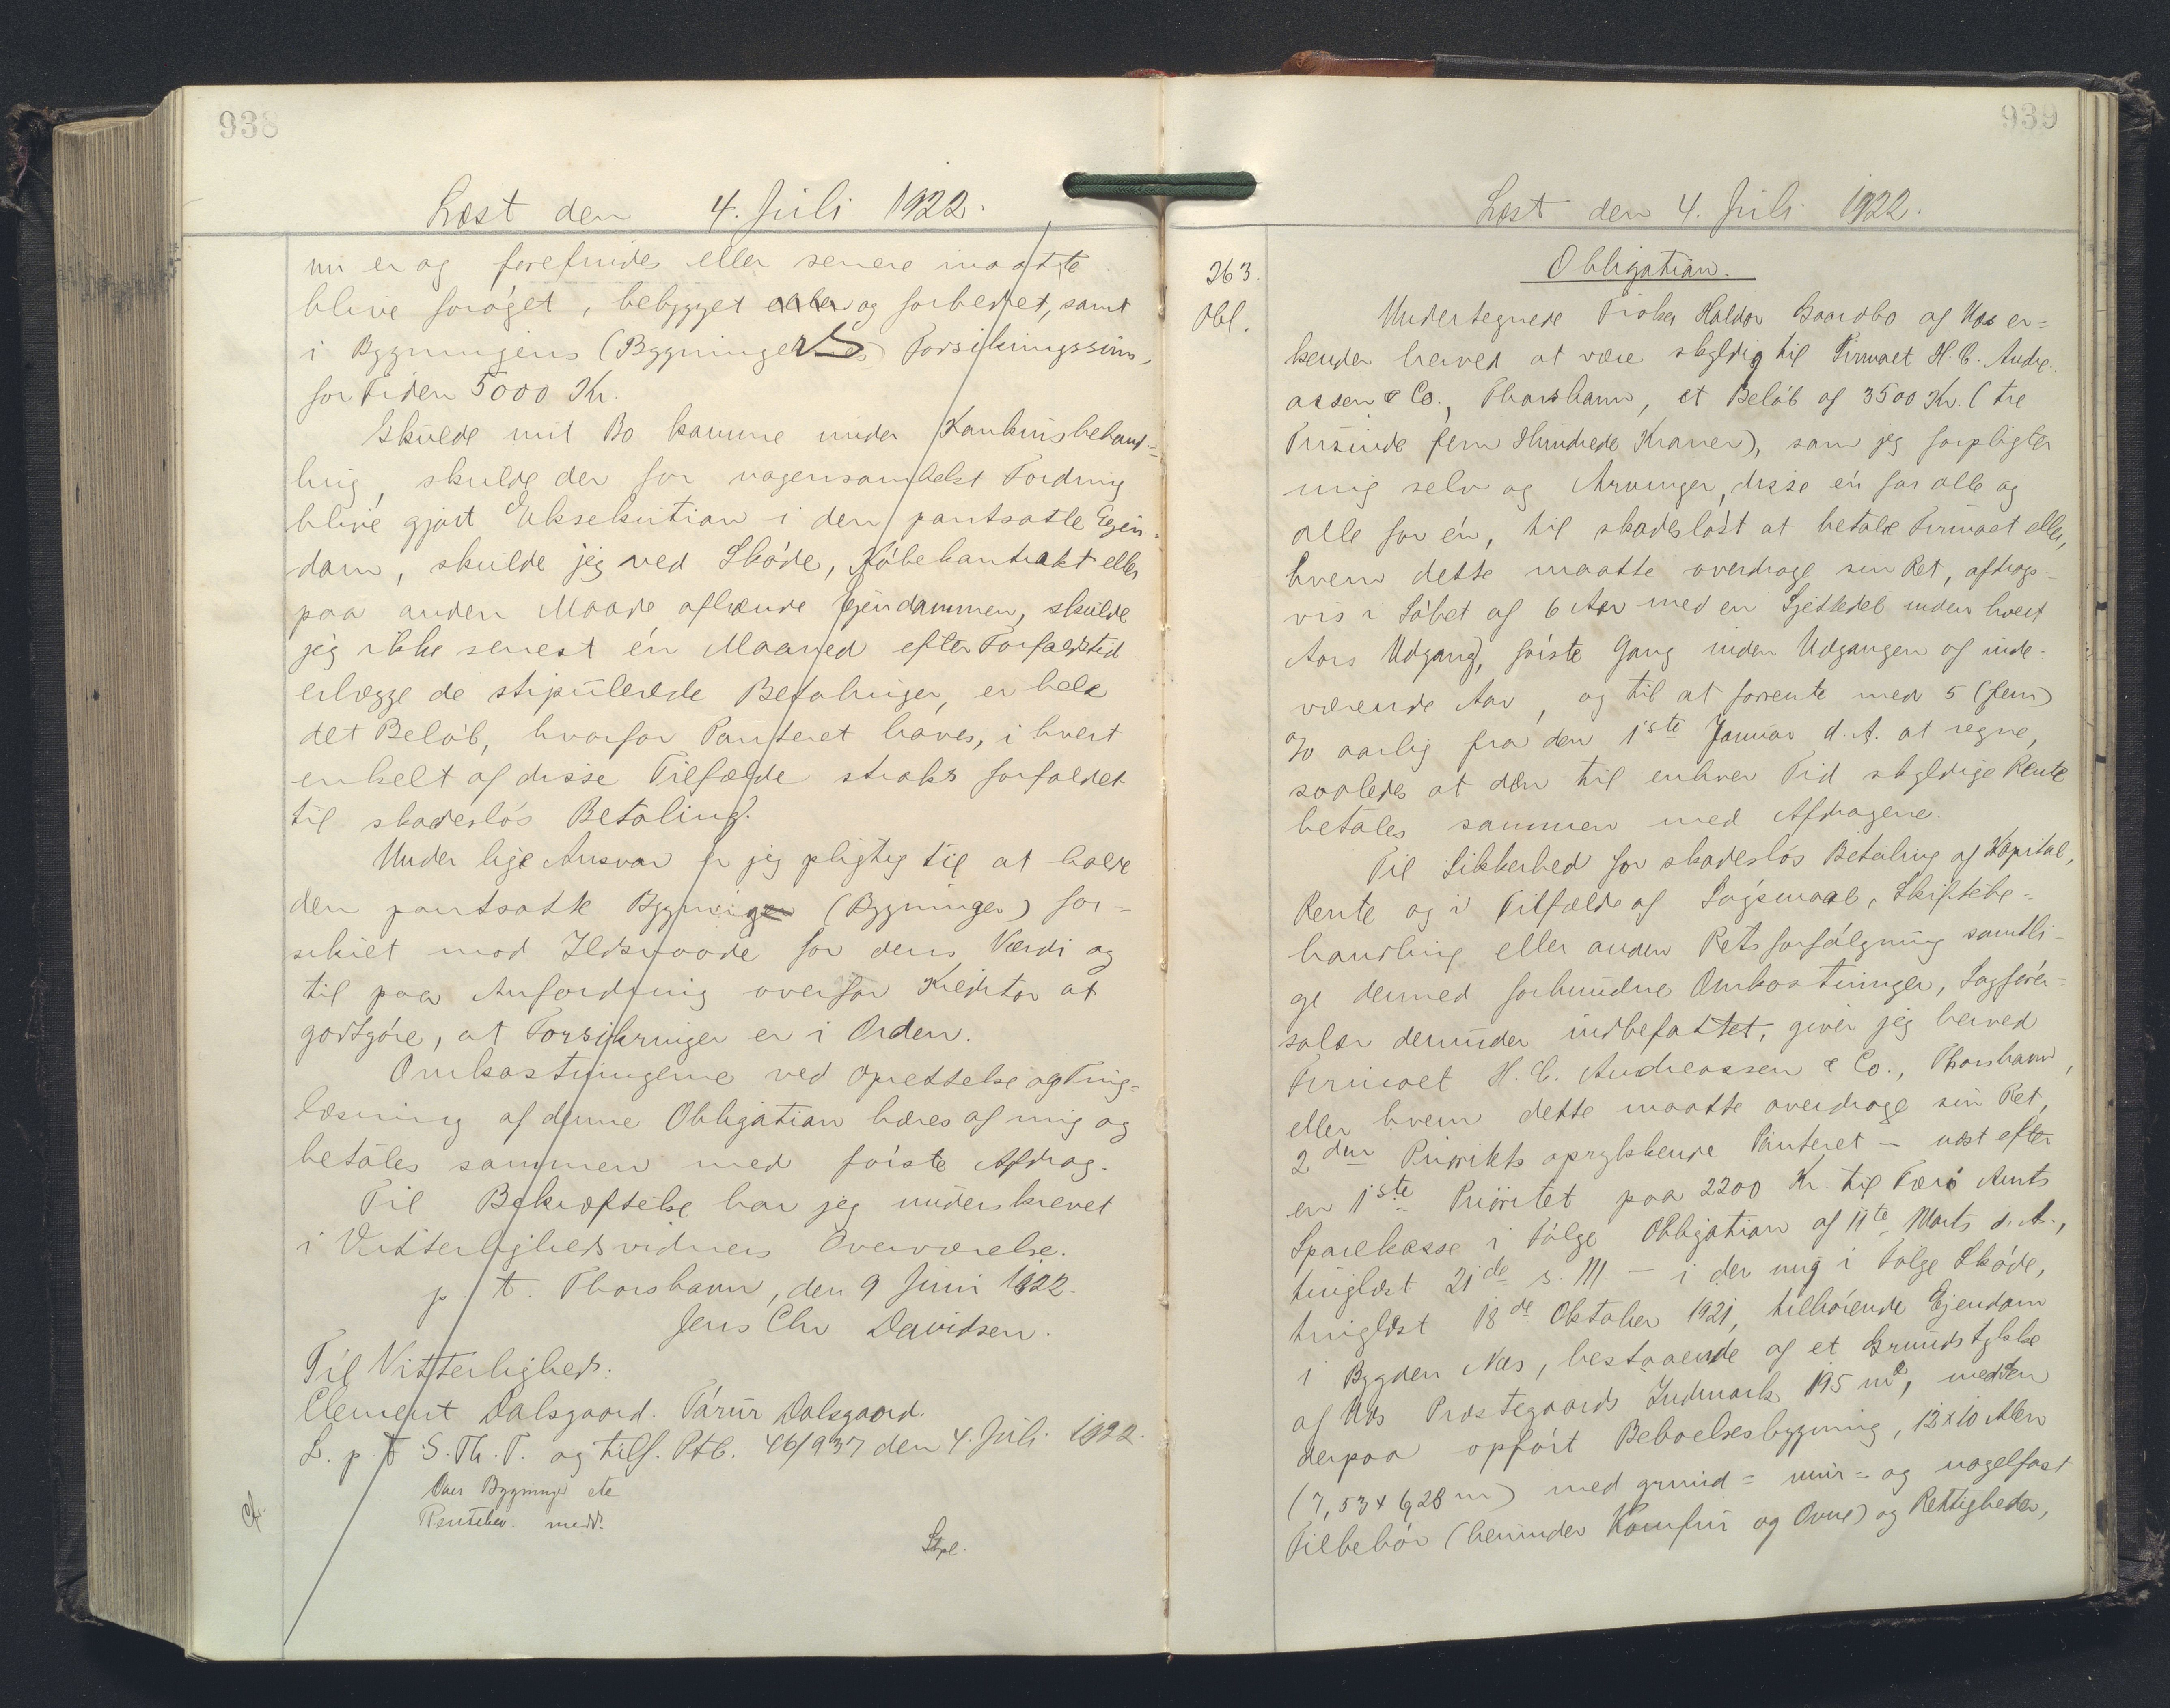 938
Læst den 4. Juli 1922.
nu er og forefindes eller senere maatte
blive forøget, bebygget eller og forbedret, samt
i Bygningens (Bygningernes) Forsikringssum,
for Tiden 5000 Kr.
Skulde mit Bo komme under Konkursbehand=
ling, skulde der for nogensomhelst Fordring
blive gjort Eksekution i den pantsatte Ejen-
dom, skulde jeg ved Skøde, Købekontrakt eller
paa anden Maade afhænde Ejendommen, skulde
jeg ikke senest én Maaned efter Forfaldstid
erlægge de stipulerede Betalinger, er hele
det Beløb, hvorfor Panteret haves, i hvert
enkelt af disse Tilfælde straks forfaldet
til skadesløs Betaling.
Under lige Ansvar er jeg pligtig til at holde
den pantsatte Bygning (Bygninger) for-
sikret mod Ildsvaade for dens Værdi og
til paa Anfordring overfor Kreditor at
godtgøre, at Forsikringen er i Orden.
Omkostningerne ved Oprettelse og Ting=
læsning af denne Obligation bæres af mig og
betales sammen med første Afdrag.
Til Bekræftelse har jeg underskrevet
i Vitterlighedsvidners Overværelse.
p. t. Thorshavn, den 9 Juni 1922.
Jens Chr Davidsen.
Til Vitterlighed:
Clement Dalsgaard. Tárur Dalsgaard.
L. p. t S. Th. T. og tilf. Ptb. 46/937 den 4. Juli 1922.
Over Bygninger etc
medd.
939
Læst den 4. Juli 1922.
263.
Obl.
Obligation.
Undertegnede Fisker Haldor Gaardbo af Næs er=
kender herved at være skyldig til Firmaet H. C. Andre-
assen & Co., Thorshavn, et Beløb af 3500 Kr. (tre
Tusinde fem Hundrede Kroner), som jeg forpligter
mig selv og Arvinger, disse én for alle og
alle for én, til skadesløst at betale Firmaet eller,
hvem dette maatte overdrage sin Ret, afdrags-
vis i Løbet af 6 Aar med en Sjettedel inden hvert
Aars Udgang, første Gang inden Udgangen af inde-
værende Aar, og til at forrente med 5 (fem)
% aarlig fra den 1ste Januar d. A. at regne,
saaledes at den til enhver Tid skyldige Rente
betales sammen med Afdragene.
Til Sikkerhed for skadesløs Betaling af Kapital,
Rente og i Tilfælde af Søgsmaal, Skiftebe=
handling eller anden Retsforfølgning samtli-
ge dermed forbundne Omkostninger, Sagfører-
salær derunder indbefattet, giver jeg herved
Firmaet H. C. Andreassen & Co., Thorshavn,
eller hvem dette maatte overdrage sin Ret,
2den Prioritets oprykkende Panteret – næst efter
en 1ste Prioritet paa 2200 Kr. til Færø Amts
Sparekasse i Følge Obligation af 11te Marts d. A.,
tinglæst 21de s. M. – i den mig i Følge Skøde,
tinglæst 18de Oktober 1921, tilhørende Ejendom
i Bygden Næs, bestaaende af et Grundstykke
af Næs Præstegaards Indmark 195 m², med den
derpaa opført Beboelsesbygning, 12x10 Alen
(7,53 x 6,28 m) med grund= mur= og nagelfast
Tilbehør (herunder Komfur og Ovne) og Rettigheder,